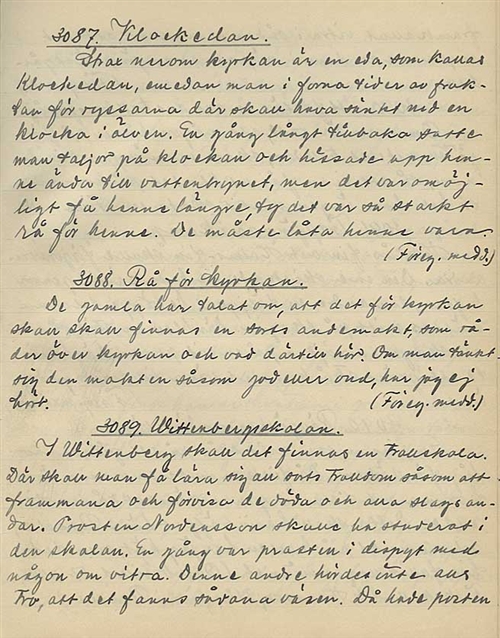 3087. Klockedan.
Strax nerom kyrkan är en eda, som kallas
Klockedan, emedan man i forna tider av fruk-
tan för ryssarna där skall hava sänkt ned en
klocka i älven. En gång långt tillbaka satte
man taljor på klockan och hissade upp hen-
ne ända till vattenbrynet, men det var omöj-
ligt få henne längre, ty det var så starkt
rå för henne. De måste låta henne vara.
(Föreg. medd.)
3088. Rå för kyrkan.
De gamla har talat om, att det för kyrkan
skall skall finnas en sorts andemakt, som rå-
der över kyrkan och vad därtill hör. Om man tänkt
sig den makten såsom god eller ond, har jag ej
hört. (Föreg. medd.)
3089. Wittenbergskolan.
I Wittenberg skall det finnas en Trollskola.
Där skall man få lära sig all sorts Trolldom såsom att
frammana och förvisa de döda och alla slags an-
dar. Prosten Nordensson skulle ha studerat i
den skolan. En gång var prosten i dispyt med
någon om vitra. Denne andre hördes inte alls
tro, att det fanns sådana väsen. Då hade prosten